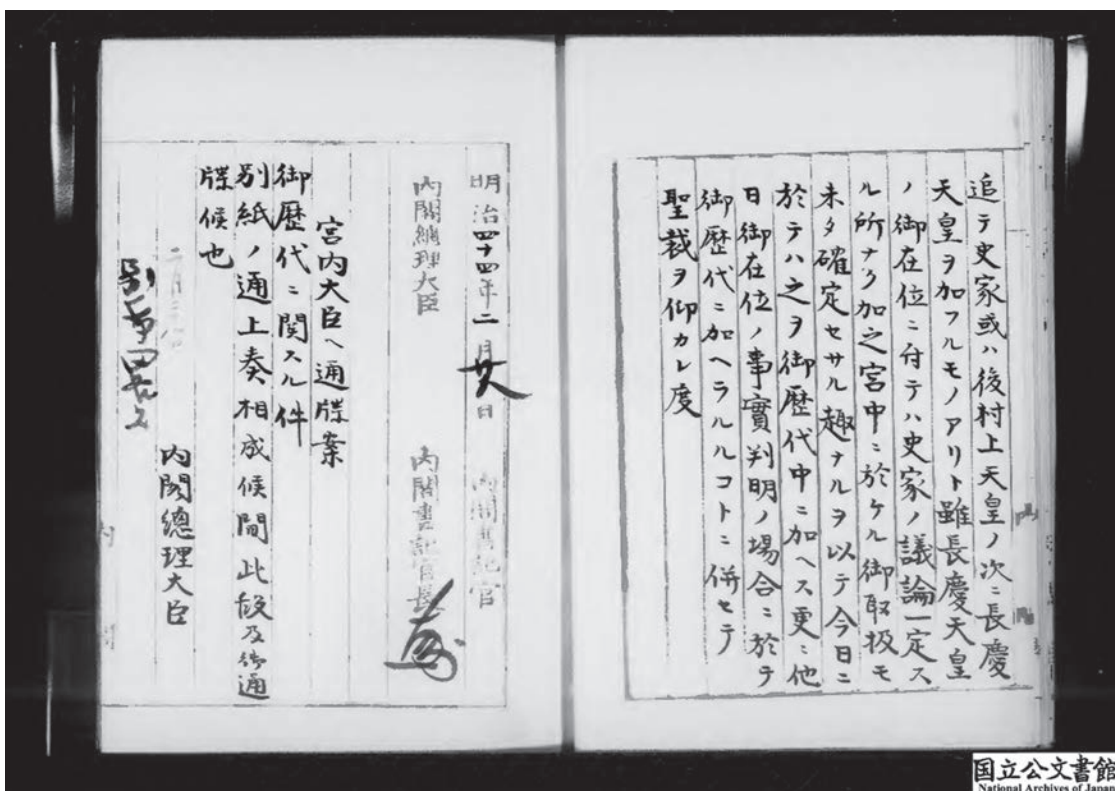 追テ史家或ハ後村上天皇ノ次ニ長慶
天皇ヲ加フルモノアリト雖長慶天皇
ノ御在位ニ付テハ史家ノ議論一定ス
ル所ナク加之宮中ニ於ケル御取扱モ
未タ確定セサル趣ナルヲ以テ今日ニ
於テハ之ヲ御歴代中ニ加ヘス更ニ他
日御在位ノ事實判明ノ場合ニ於テ
御歴代ニ加ヘラルルコトニ併セテ
聖裁ヲ仰カレ度
明治四十四年二月廿八日 内閣書記官
内閣總理大臣 内閣書記官長
宮内大臣ヘ通牒案
御歴代ニ関スル件
別紙ノ通上奏相成候間此段及御通
牒候也
内閣總理大臣
国立公文書館
National Archives of Japan